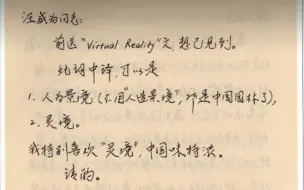 汪成为同志:
前送“Virtual Reality”文,想已见到。
此词中译,可以是
1. 人为景境(不用“人造景境”,那是中国园林了),
2. 灵境。
我特别喜欢“灵境”,中国味特浓。
请酌。